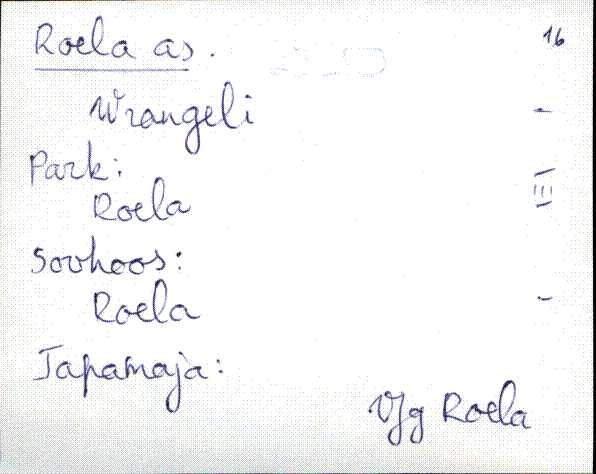 Roela as. 16
Wrangeli -
Park:
Roela III
Sovhoos:
Roela -
Tapamaja:
Vjg Roela